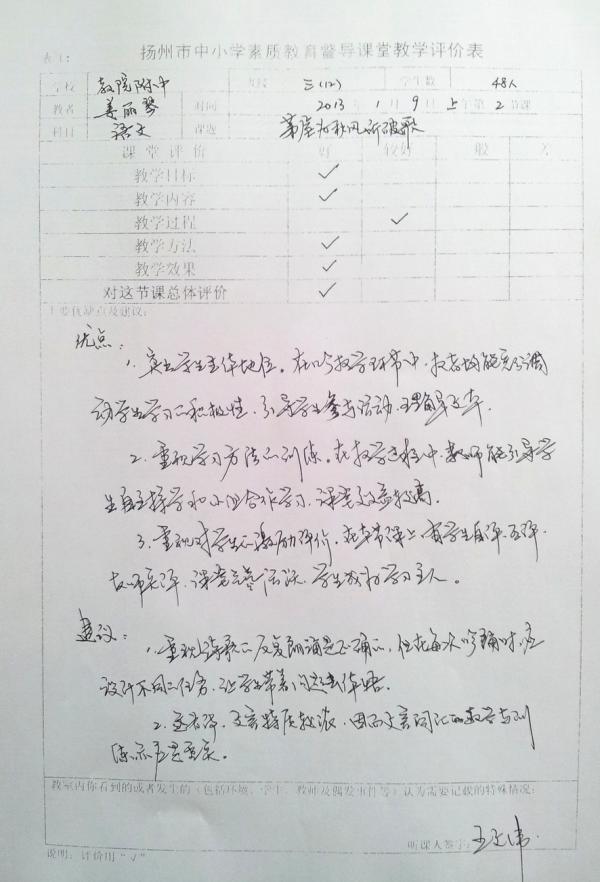 表1：
扬州市中小学素质教育督导课堂教学评价表
学校 教院附中 三(12) 学生数 48人
教者 姜丽琴 时间 2013年1月9日上午第2节课
科目 语文 课题 茅屋为秋风所破歌
课堂评价 好 较好 一般 差
教学目标 ✓
教学内容 ✓
教学过程 ✓
教学方法 ✓
教学效果 ✓
对这节课总体评价 ✓
主要优缺点及建议：
优点：
1、突出学生主体地位。在各教学环节中，教者均能充分调
动学生学习的积极性，引导学生参与活动，理解文本。
2、重视学习方法的训练。在教学过程中，教师能引导学
生自主探学和小组合作学习，课堂效益较高。
3、重视对学生的激励评价。在本节课上有学生自评、互评、
教师点评，课堂气氛活跃，学生成为学习主人。
建议：
1、重视诗歌的反复朗诵是正确的，但在每次吟诵时，应
设计不同的任务，让学生带着问题去体悟。
2、文言
练亦应是重点。
教室内你看到的或者发生的（包括环境、学生、教师及偶发事件等）认为需要记载的特殊情况：
听课人签字：王
说明：评价用“✓”